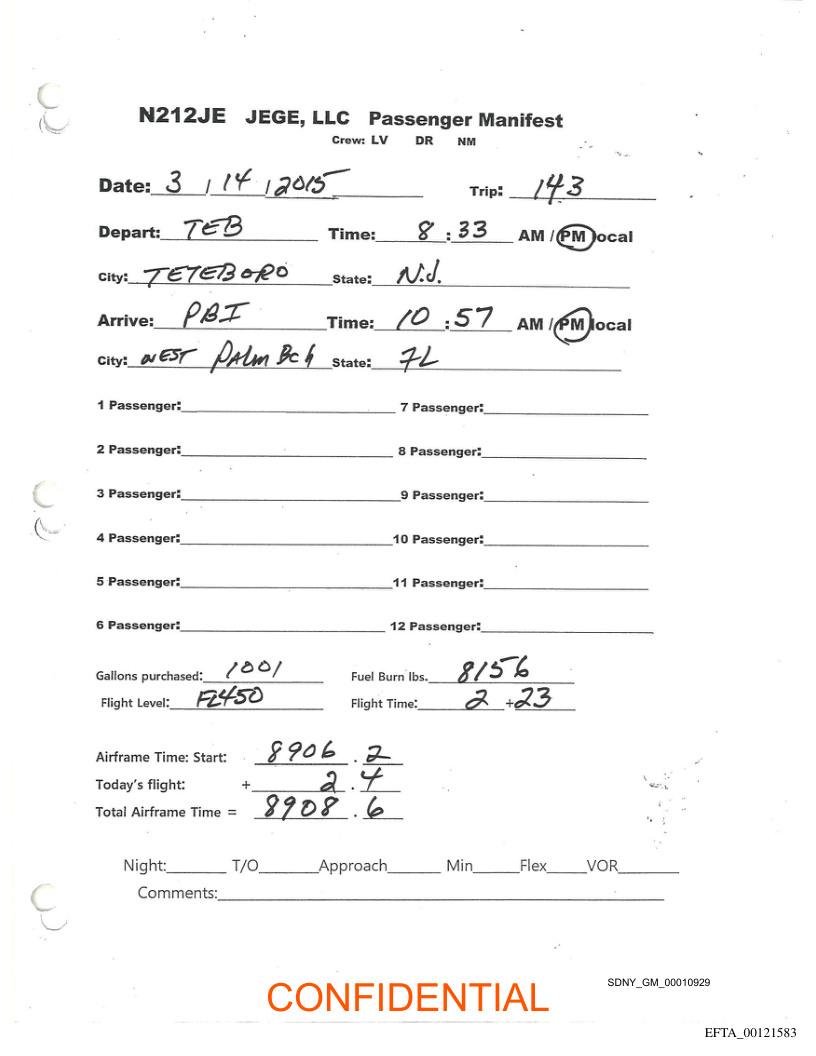 N212JE JEGE, LLC Passenger Manifest
Crew: LV DR NM
Date: 3 / 14 / 2015 Trip: 143
Depart: TEB Time: 8 : 33 AM / PM local
City: TETEBORO State: N.J.
Arrive: PBI Time: 10 : 57 AM / PM local
City: WEST PALM BCH State: FL
1 Passenger: 7 Passenger:
2 Passenger: 8 Passenger:
3 Passenger: 9 Passenger:
4 Passenger: 10 Passenger:
5 Passenger: 11 Passenger:
6 Passenger: 12 Passenger:
Gallons purchased: 1001 Fuel Burn lbs. 8156
Flight Level: FL450 Flight Time: 2 +23
Airframe Time: Start: 8906 . 2
Today's flight: + 2 . 4
Total Airframe Time = 8908 . 6
Night: T/O Approach Min Flex VOR
Comments:
SDNY_GM_00010929
CONFIDENTIAL
EFTA_00121583